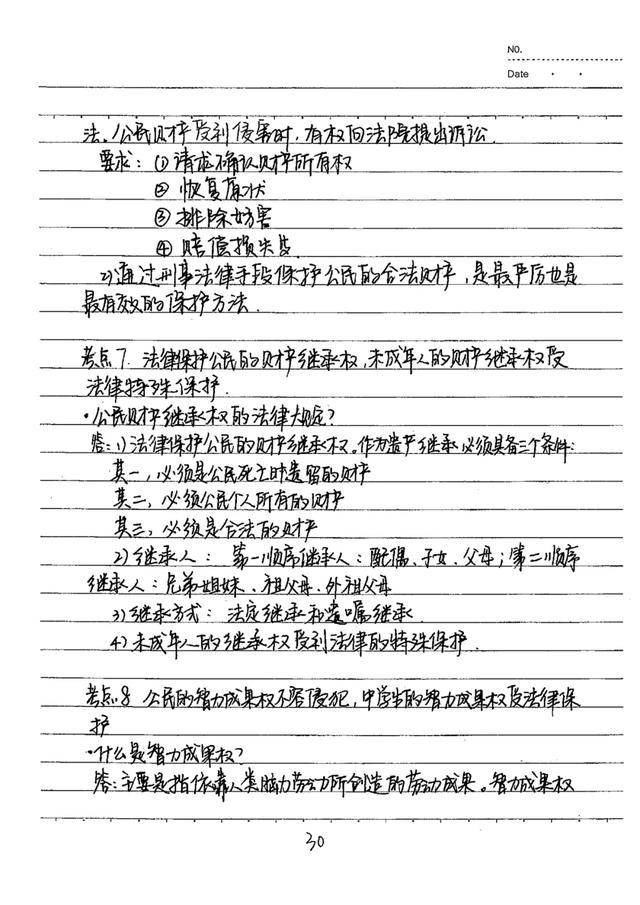 NO.
Date
法. 公民财产受到侵害时，有权向法院提出诉讼.
要求：① 请求确认财产所有权
② 恢复原状
③ 排除妨害
④ 赔偿损失
2)通过刑事法律手段保护公民的合法财产，是最严厉也是
最有效的保护方法.
考点7. 法律保护公民的财产继承权,未成年人的财产继承权受
法律特殊保护.
·公民财产继承权的法律规定?
答:1)法律保护公民的财产继承权。作为遗产继承必须具备三个条件:
其一,必须是公民死亡时遗留的财产
其二、必须公民个人所有的财产
其三、必须是合法的财产
2)继承人： 第一顺序继承人：配偶、子女、父母；第二顺序
继承人：兄弟姐妹、祖父母、外祖父母
3)继承方式： 法定继承和遗嘱继承.
4)未成年人的继承权受到法律的特殊保护.
考点8 公民的智力成果权不容侵犯,中学生的智力成果权受法律保
护
·什么是智力成果权?
答:主要是指依靠人类脑力劳动所创造的劳动成果。智力成果权
30